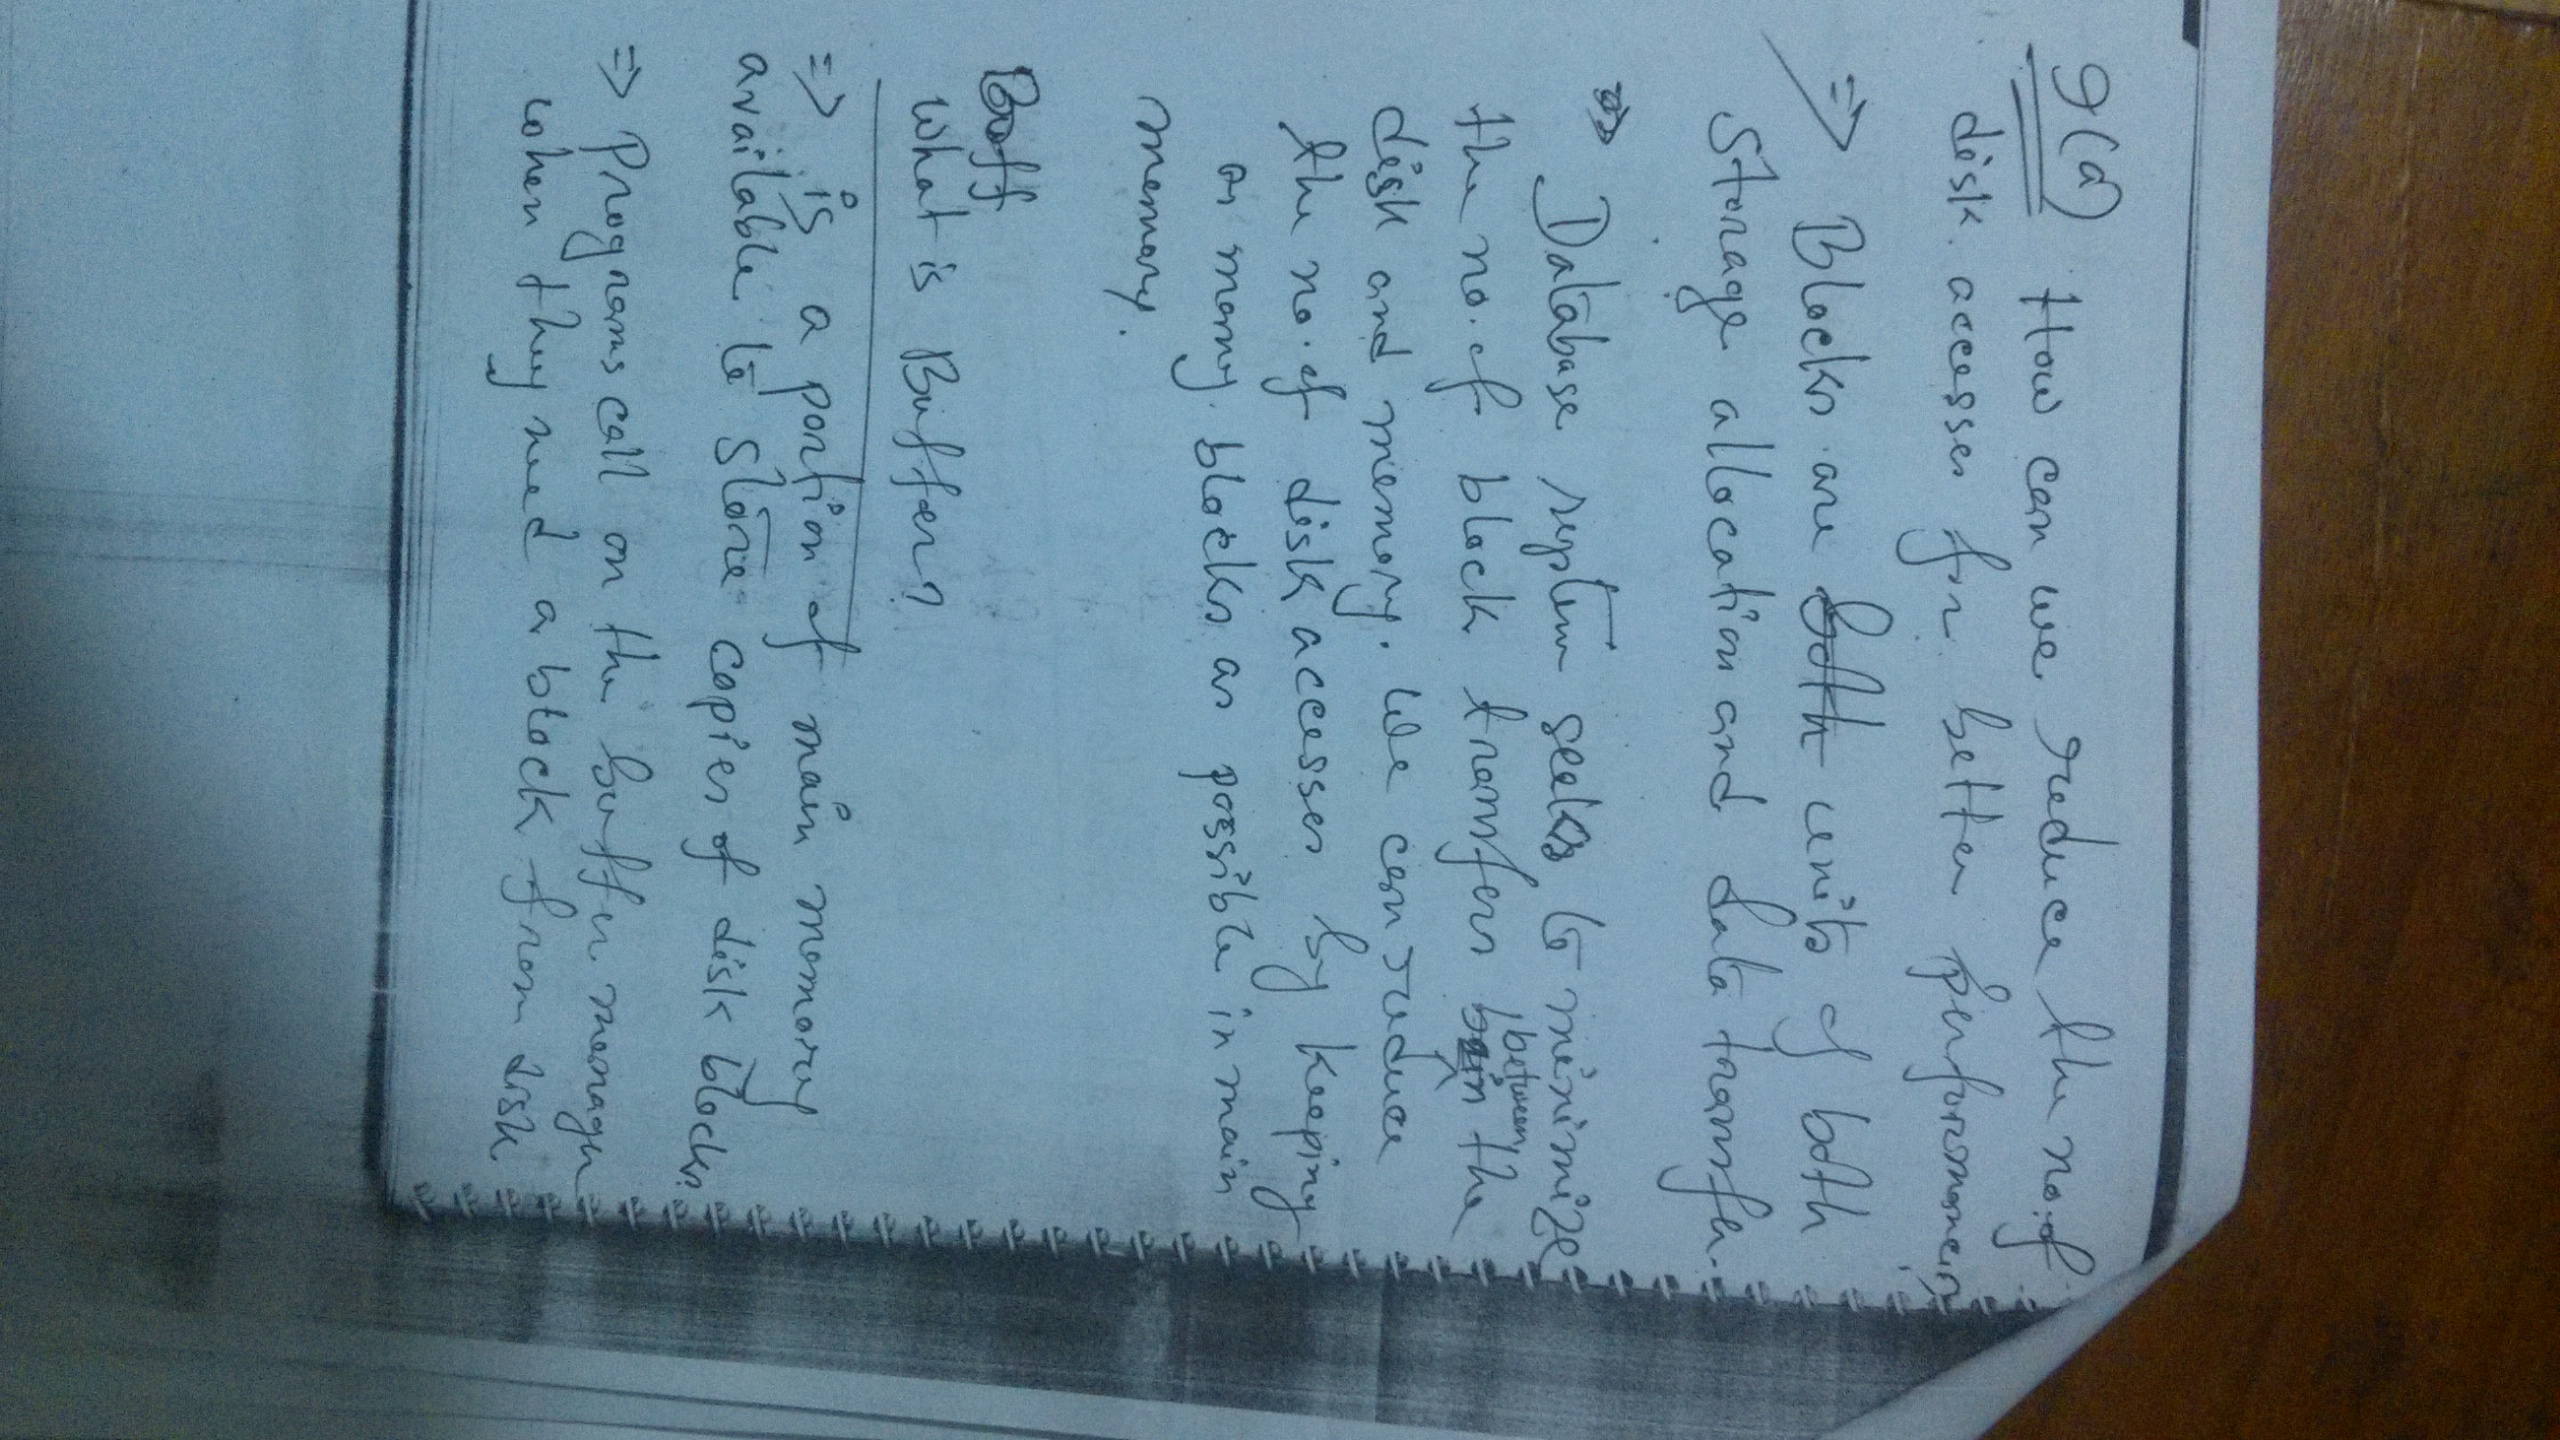 9(a) How can we reduce the no. of
disk accesses for better performance in
⇒ Blocks are both units of both
storage allocation and data transfer.
⇒ Database system seeks to minimize
the no. of block transfers between the
disk and memory. We can reduce
the no. of disk accesses by keeping
as many blocks as possible in main
memory.
Buff
What is Buffer?
⇒ is a portion of main memory
available to store copies of disk blocks.
⇒ Programs call on the buffer manager
when they need a block from disk